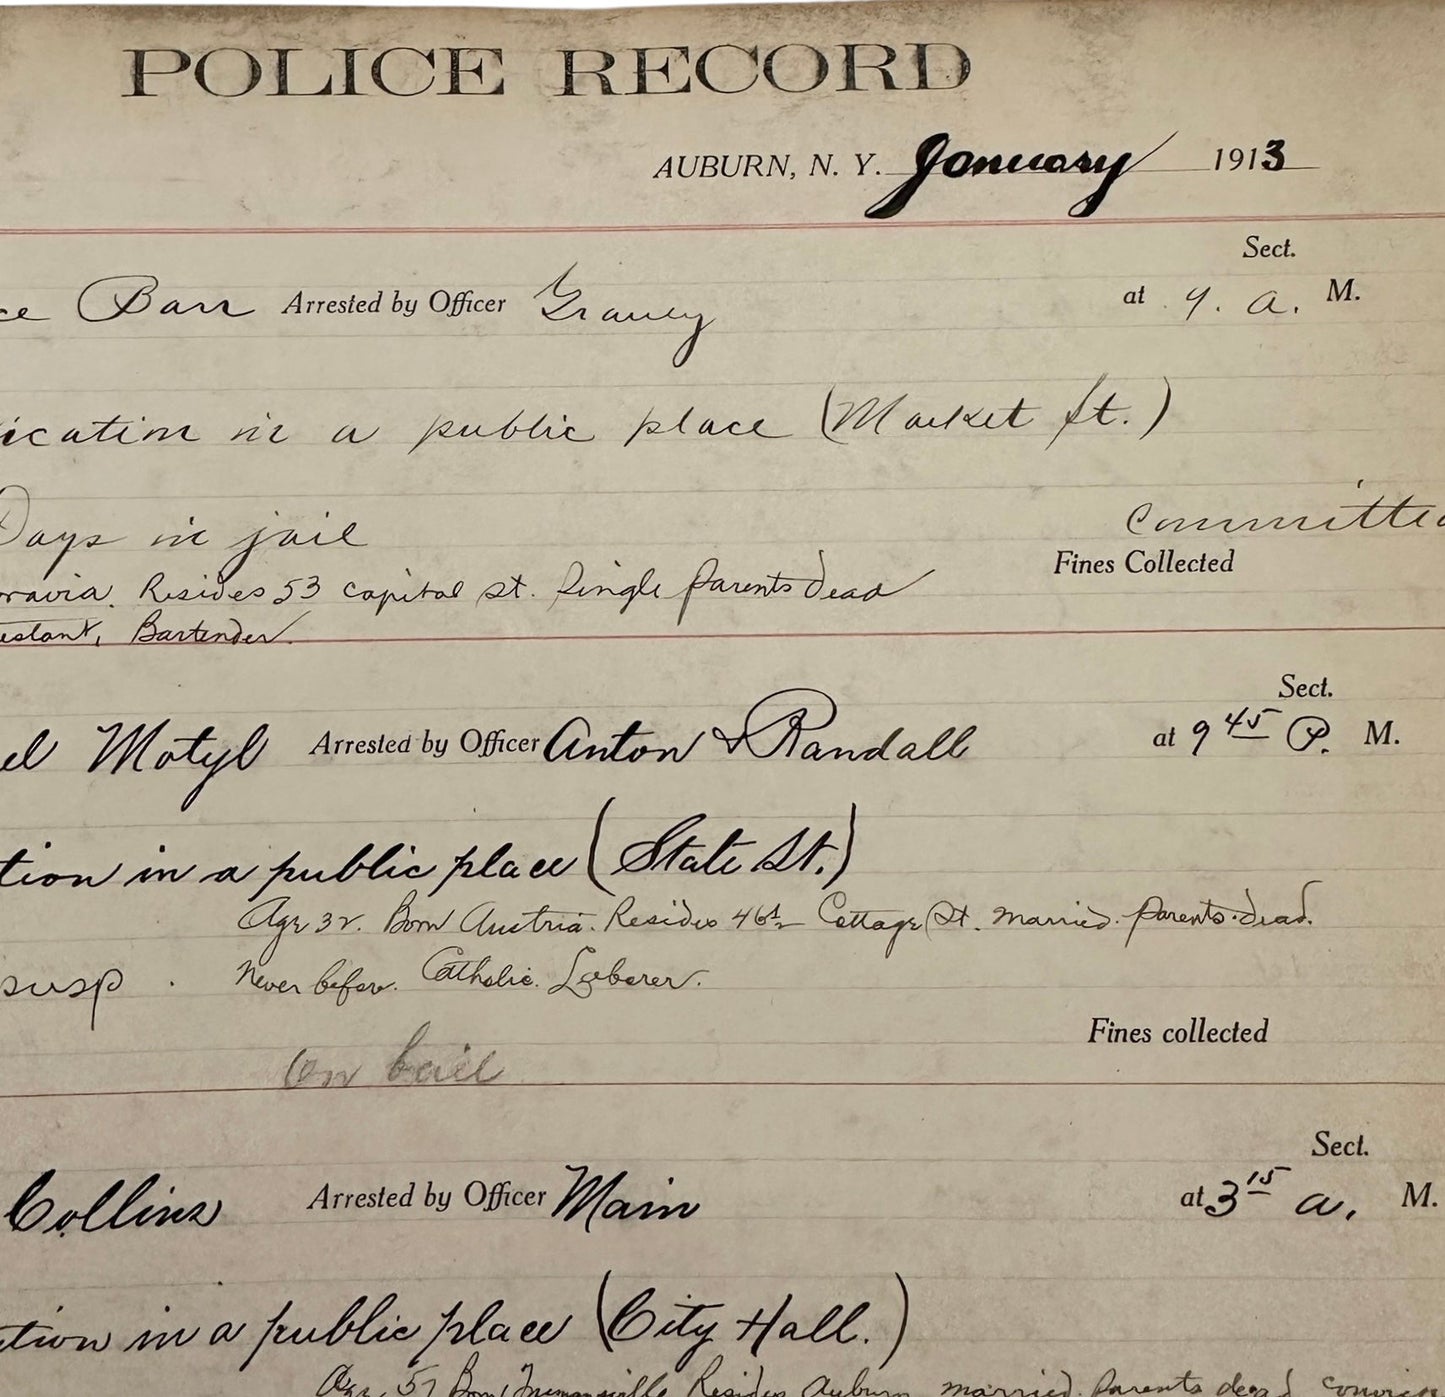 POLICE RECORD
AUBURN, N. Y. January 1913
Sect.
ce Barr Arrested by Officer Graney at 9. a. M.
ication in a public place (Market St.)
Days in jail Committed
Fines Collected
ravia. Resides 53 capital st. Single Parents dead
estant, Bartender.
Sect.
el Motyl Arrested by Officer Anton & Randall at 9 45 P. M.
tion in a public place (State St.)
Age 32. Born Austria. Resides 46½ Cottage St. married. parents. dead.
susp. Never before. Catholic. Laborer.
Fines collected
On bail
Sect.
Collins Arrested by Officer Main at 3 15 a. M.
tion in a public place (City Hall.)
Age 57 Born Resides Auburn married. Parents dead